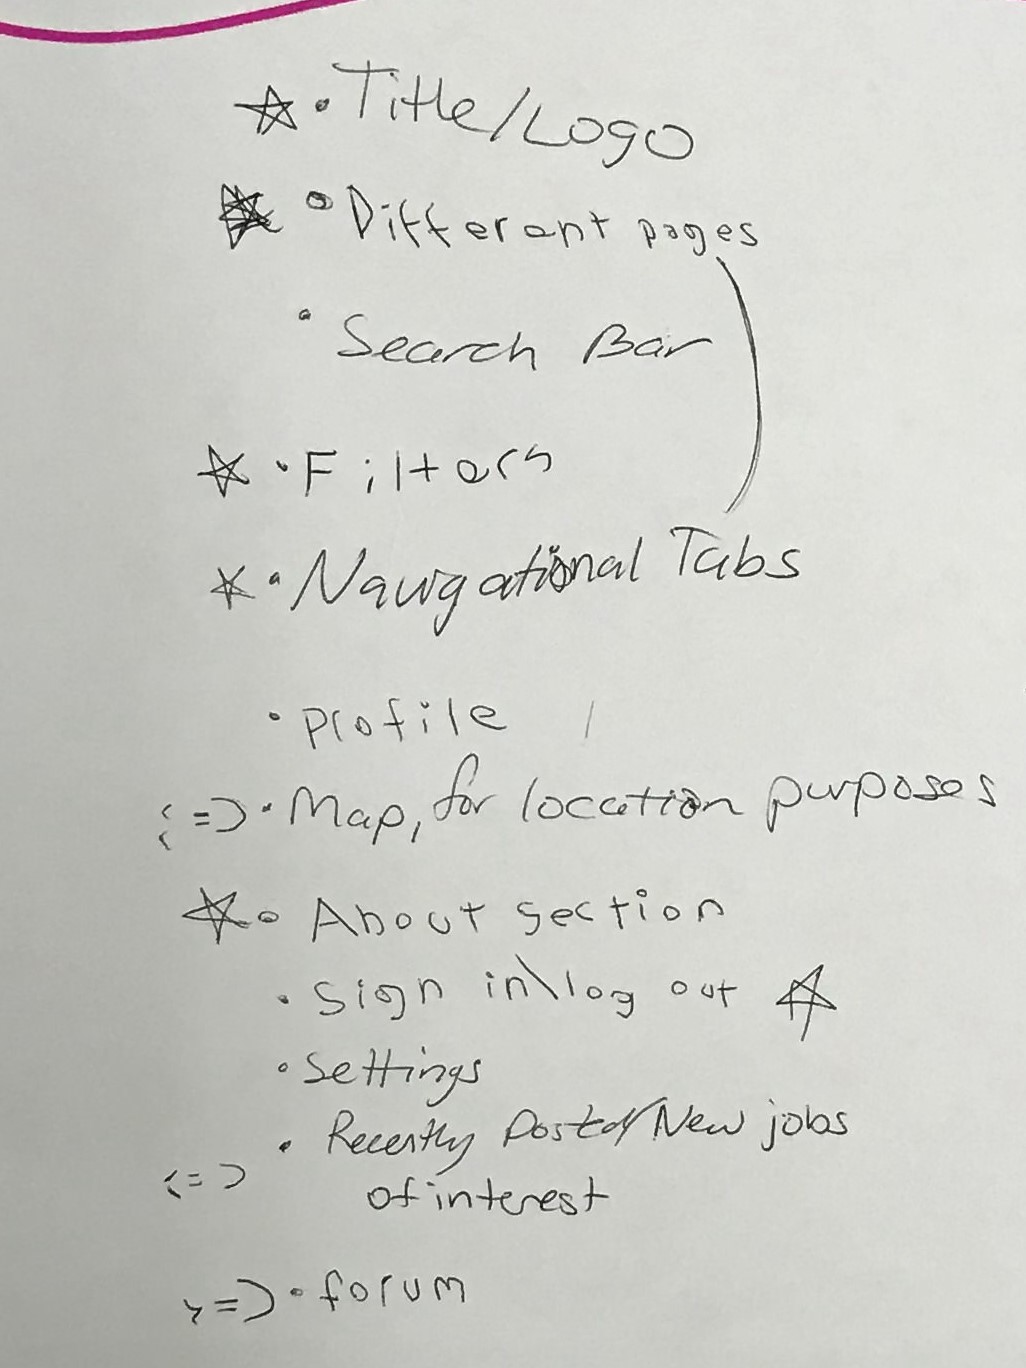 ☆ • Title/Logo
☆ • Different pages
• Search Bar
☆ • Filters
☆ • Navigational Tabs
• Profile
• Map, for location purposes
☆ • About section
• Sign in\log out ☆
• Settings
• Recently Posted/New jobs
of interest
• forum